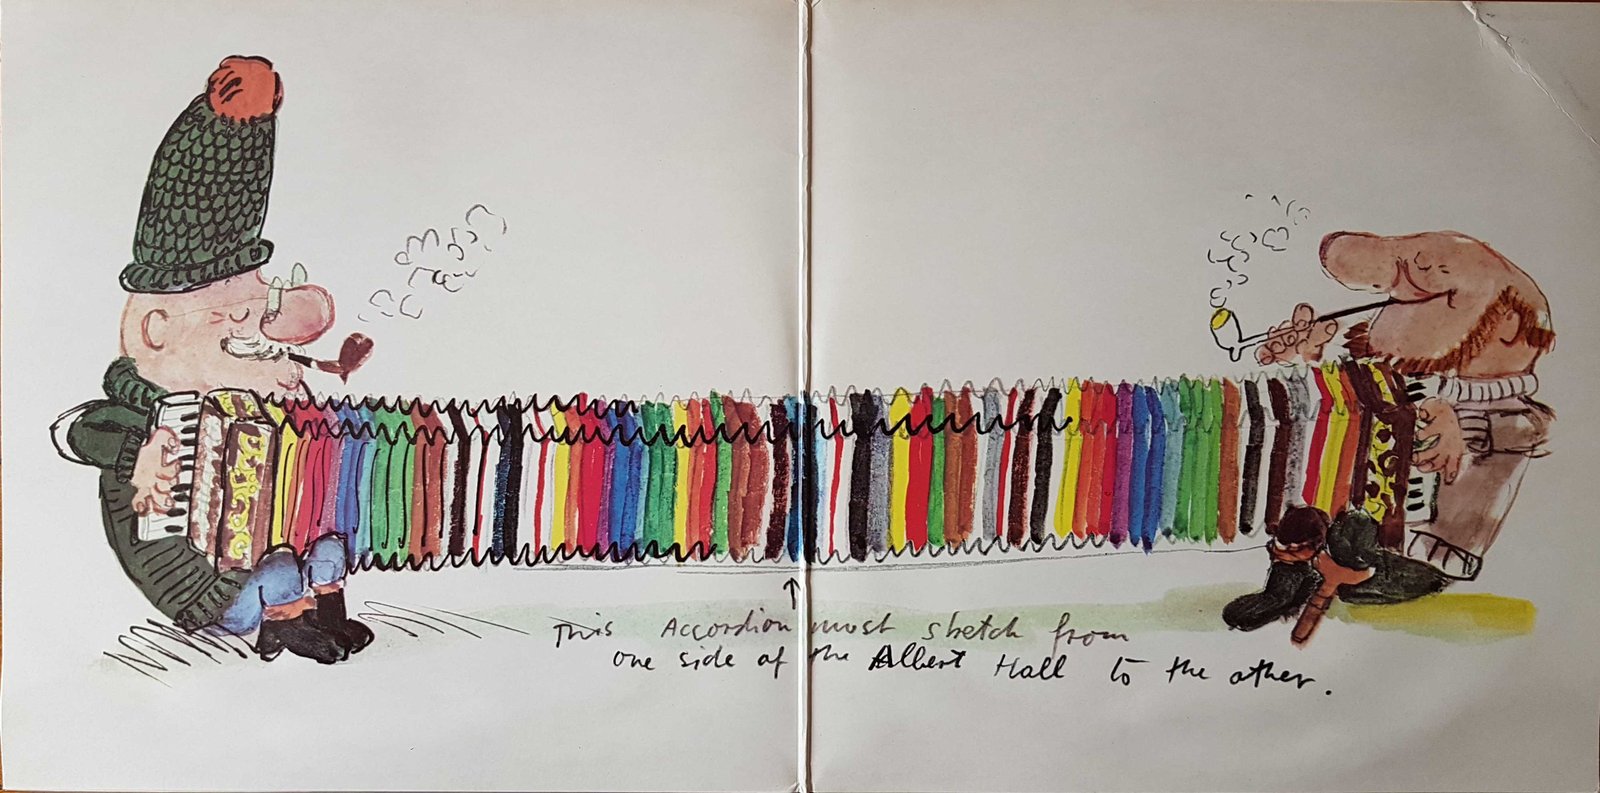 This Accordion must sketch from
one side of the Albert Hall to the other.